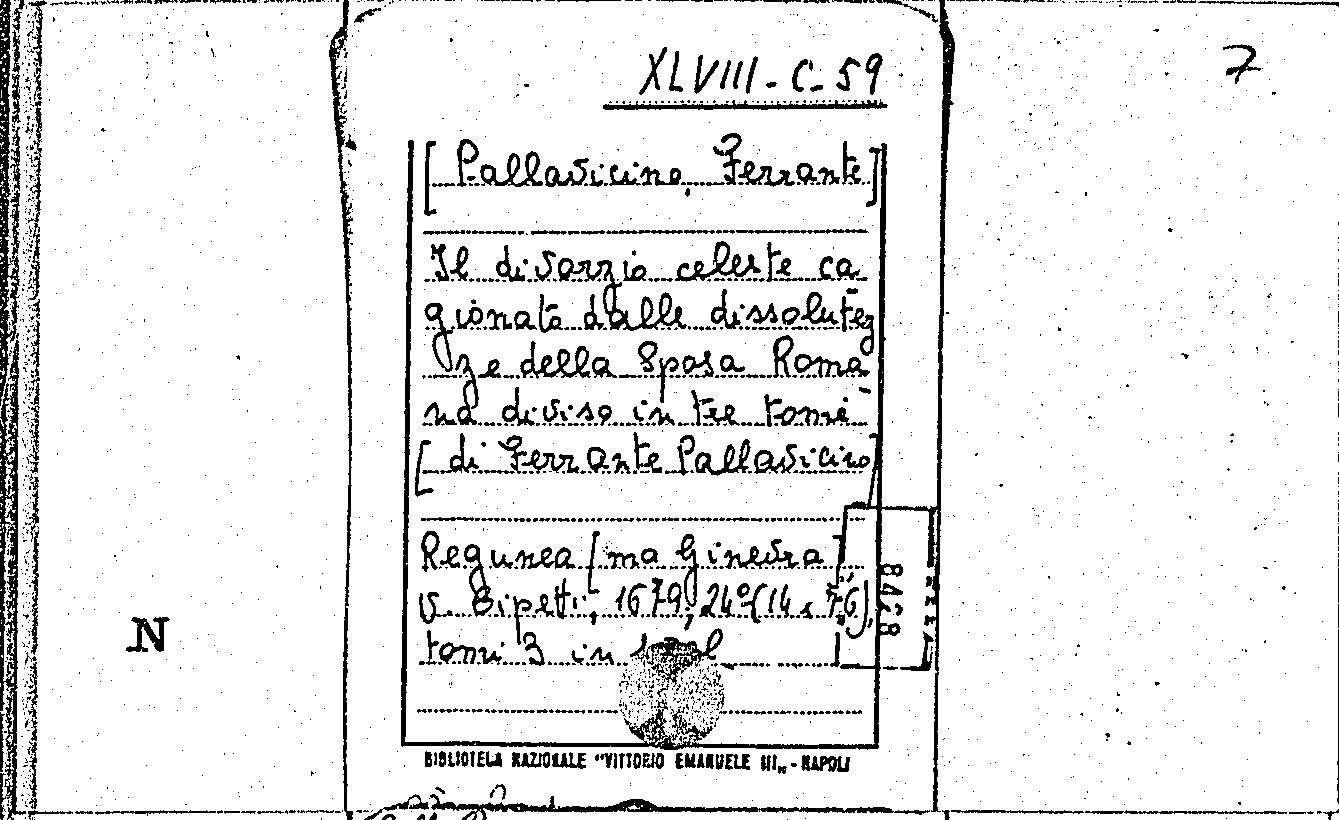 XLVIII-C-59
7
[Pallavicino, Ferrante]
Il divorzio celeste ca-
gionato dalle dissolutez
ze della Sposa Roma-
na diviso in tre tomi
[di Ferrante Pallavicino]
Regunea [ma Ginevra],
v. Bipetti, 1679, 24º (14 x 7,6),
tomi 3 in 1 vol
8428
N
BIBLIOTECA NAZIONALE "VITTORIO EMANUELE III„ - NAPOLI